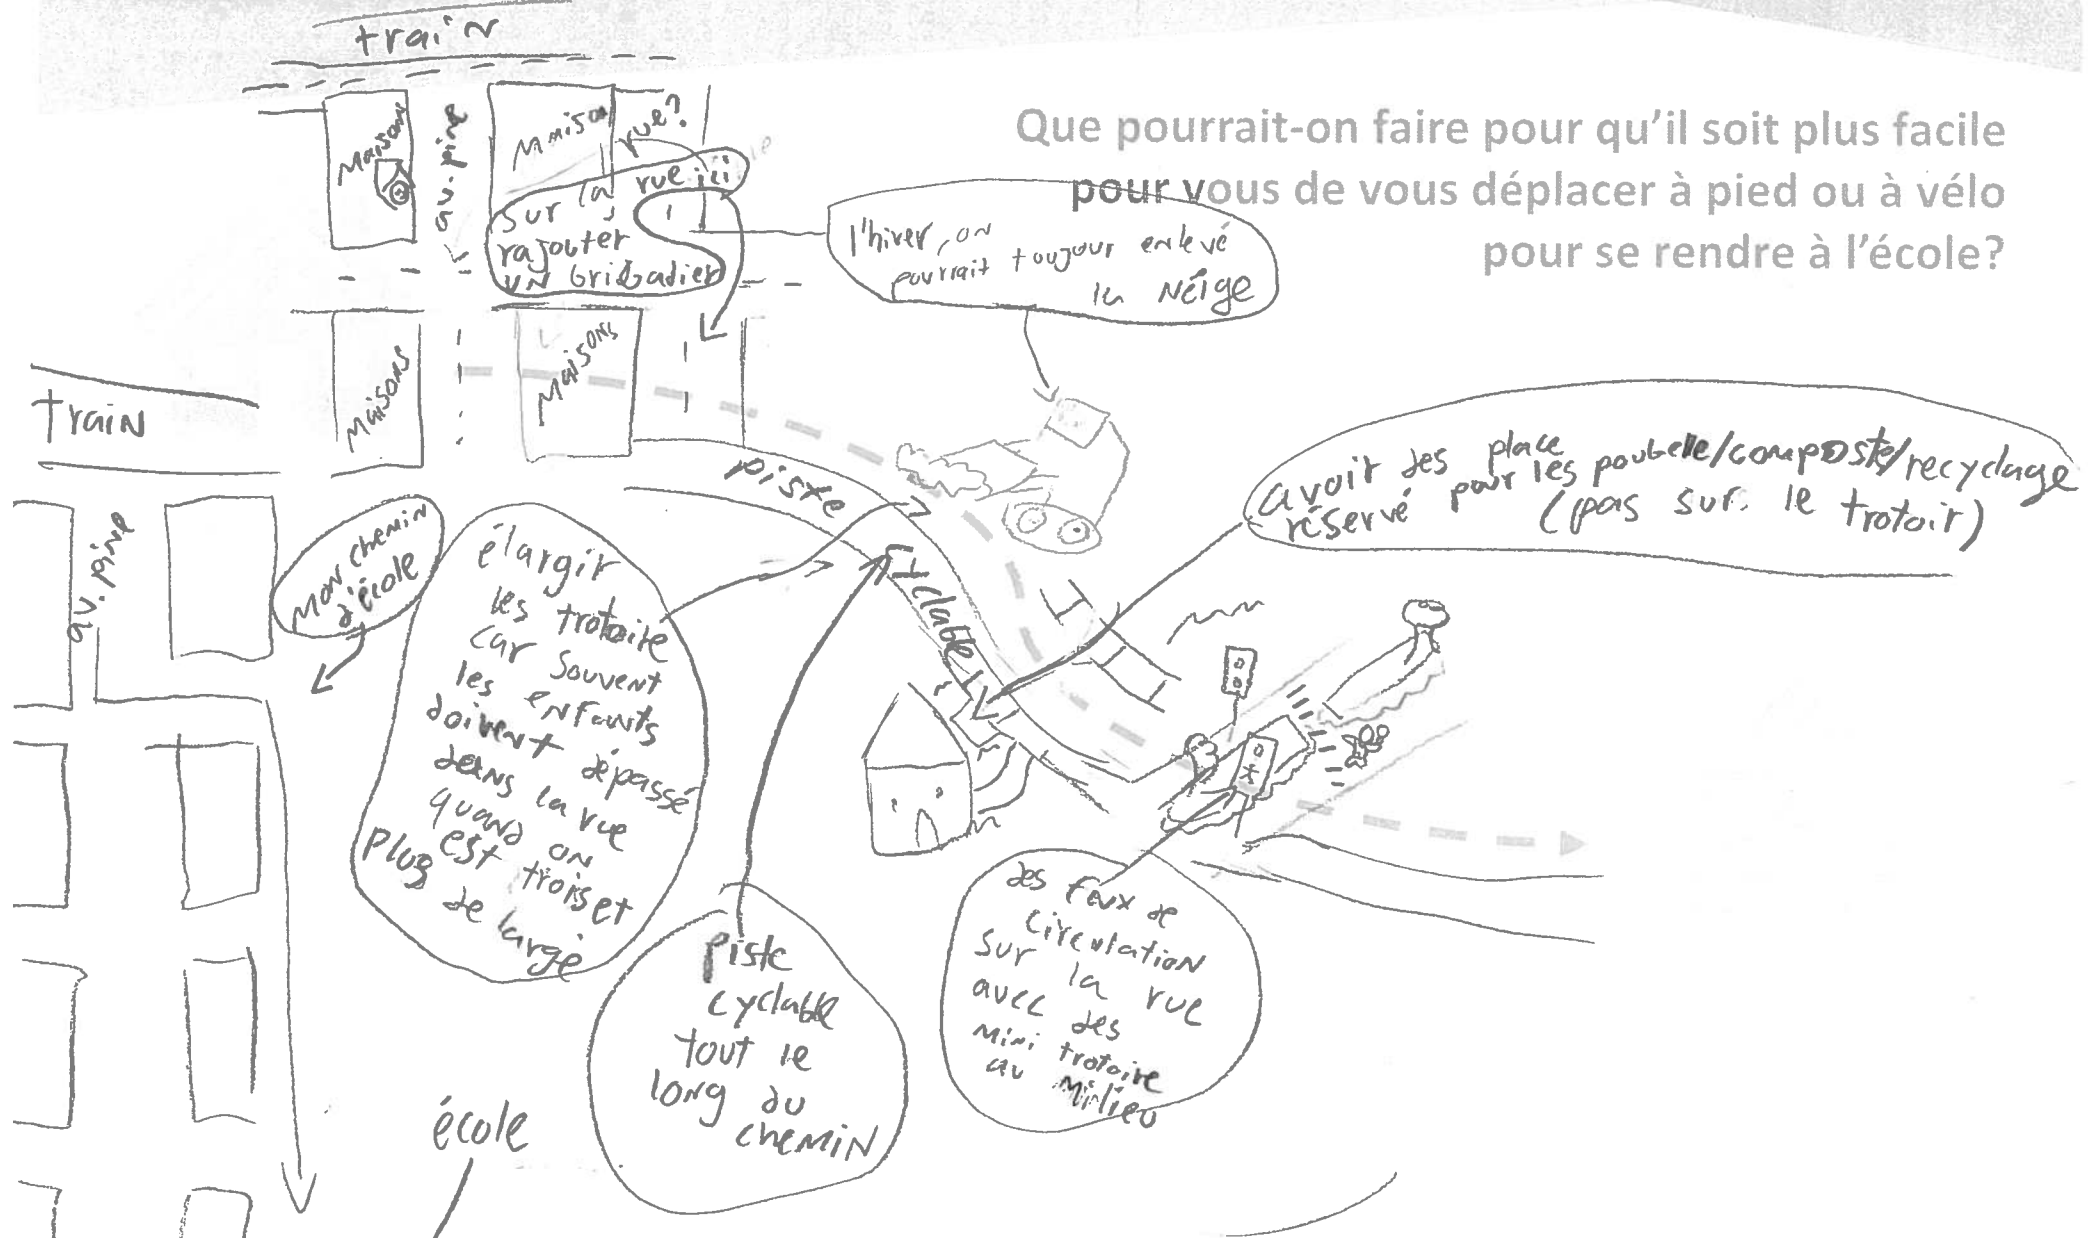 train
Que pourrait-on faire pour qu'il soit plus facile
pour vous de vous déplacer à pied ou à vélo
pour se rendre à l'école?
Maisons
av. pine
Maison
rue?
sur la rue ici
rajouter
un brigadier
l'hiver, on
pourrait toujour enlevé
la Néige
Maisons
Maisons
train
piste
cyclable
avoir des place
réservé pour les poubelle/composte/recyclage
(pas sur le trotoir)
av. pine
mon chemin
d'école
élargir
les trotoire
car souvent
les enfants
doivent dépassé
dans la rue
quand on
est trois et
plus de large
piste
cyclable
tout le
long du
chemin
des feux de
circulation
sur la rue
avec des
mini trotoire
au milieu
école